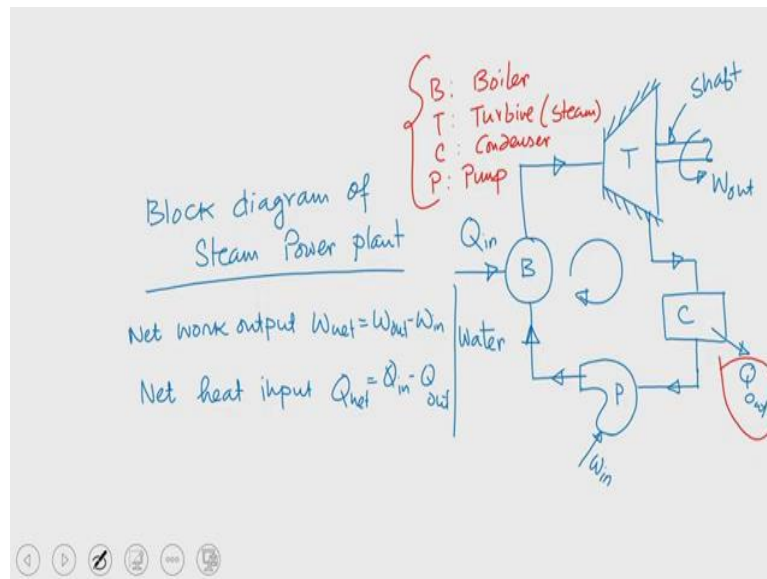 B: Boiler
T: Turbine (steam)
C: Condenser
P: Pump
Shaft
T
Wout
Block diagram of
Steam Power plant
Qin
B
C
Water
Net work output Wnet = Wout - Win
Net heat input Qnet = Qin - Qout
P
Q out
Win